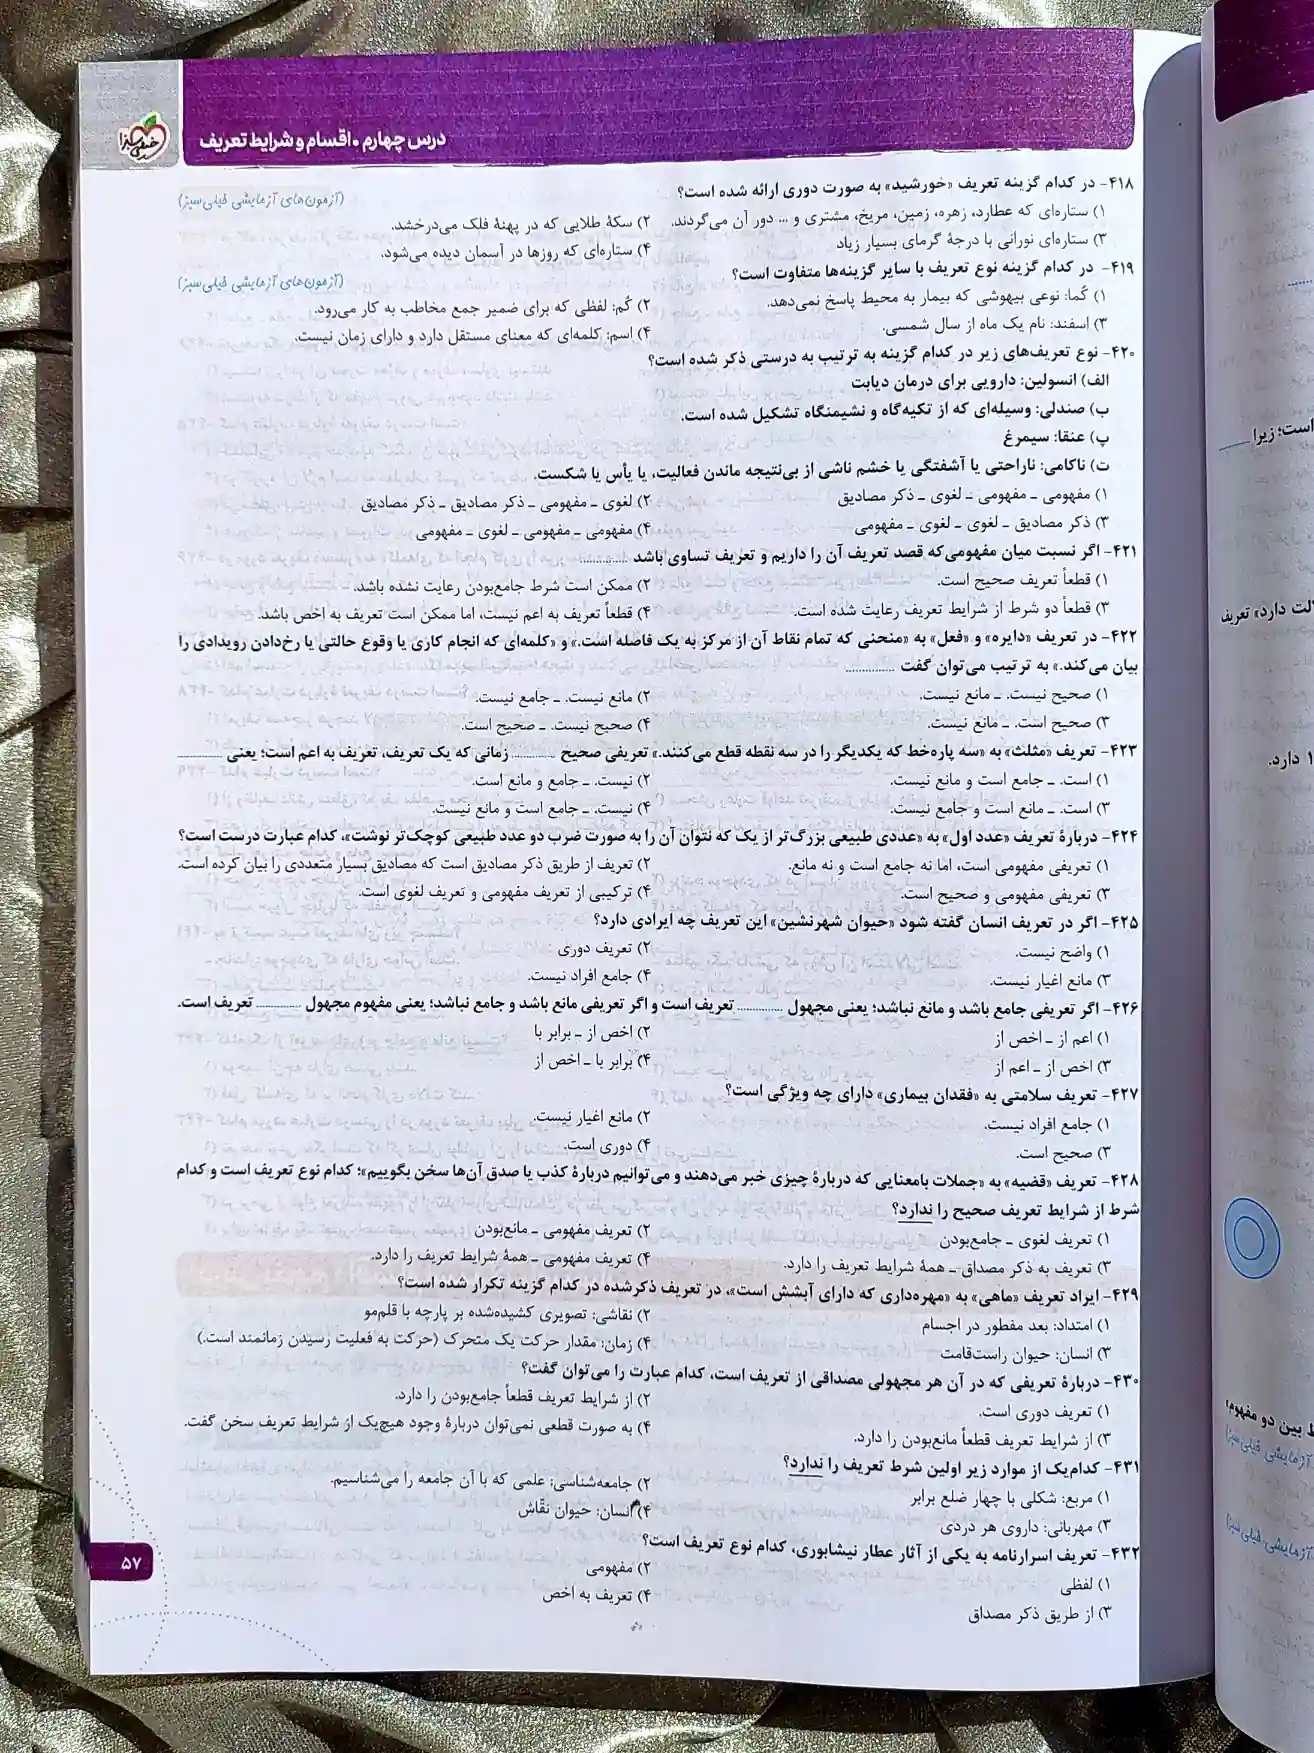 درس چهارم • اقسام و شرایط تعریف
خیلی سبز
۴۱۸- در کدام گزینه تعریف «خورشید» به صورت دوری ارائه شده است؟
(آزمون‌های آزمایشی خیلی سبز)
۱) ستاره‌ای که عطارد، زهره، زمین، مریخ، مشتری و ... دور آن می‌گردند.
۲) سکهٔ طلایی که در پهنهٔ فلک می‌درخشد.
۳) ستاره‌ای نورانی با درجهٔ گرمای بسیار زیاد
۴) ستاره‌ای که روزها در آسمان دیده می‌شود.
۴۱۹- در کدام گزینه نوع تعریف با سایر گزینه‌ها متفاوت است؟
(آزمون‌های آزمایشی خیلی سبز)
۱) کُما: نوعی بیهوشی که بیمار به محیط پاسخ نمی‌دهد.
۲) کُم: لفظی که برای ضمیر جمع مخاطب به کار می‌رود.
۳) اسفند: نام یک ماه از سال شمسی.
۴) اسم: کلمه‌ای که معنای مستقل دارد و دارای زمان نیست.
۴۲۰- نوع تعریف‌های زیر در کدام گزینه به ترتیب به درستی ذکر شده است؟
الف) انسولین: دارویی برای درمان دیابت
ب) صندلی: وسیله‌ای که از تکیه‌گاه و نشیمنگاه تشکیل شده است.
پ) عنقا: سیمرغ
ت) ناکامی: ناراحتی یا آشفتگی یا خشم ناشی از بی‌نتیجه ماندن فعالیت، یا یأس یا شکست.
۱) مفهومی ـ مفهومی ـ لغوی ـ ذکر مصادیق
۲) لغوی ـ مفهومی ـ ذکر مصادیق ـ ذکر مصادیق
۳) ذکر مصادیق ـ لغوی ـ لغوی ـ مفهومی
۴) مفهومی ـ مفهومی ـ لغوی ـ مفهومی
۴۲۱- اگر نسبت میان مفهومی‌که قصد تعریف آن را داریم و تعریف تساوی باشد ............
۱) قطعاً تعریف صحیح است.
۲) ممکن است شرط جامع‌بودن رعایت نشده باشد.
۳) قطعاً دو شرط از شرایط تعریف رعایت شده است.
۴) قطعاً تعریف به اعم نیست، اما ممکن است تعریف به اخص باشد.
۴۲۲- در تعریف «دایره» و «فعل» به «منحنی که تمام نقاط آن از مرکز به یک فاصله است.» و «کلمه‌ای که انجام کاری یا وقوع حالتی یا رخ‌دادن رویدادی را
بیان می‌کند.» به ترتیب می‌توان گفت ............
۱) صحیح نیست. ـ مانع نیست.
۲) مانع نیست. ـ جامع نیست.
۳) صحیح است. ـ مانع نیست.
۴) صحیح نیست. ـ صحیح است.
۴۲۳- تعریف «مثلث» به «سه پاره‌خط که یکدیگر را در سه نقطه قطع می‌کنند.» تعریفی صحیح ............ زمانی که یک تعریف، تعریف به اعم است؛ یعنی ............
۱) است. ـ جامع است و مانع نیست.
۲) نیست. ـ جامع و مانع است.
۳) است. ـ مانع است و جامع نیست.
۴) نیست. ـ جامع است و مانع نیست.
۴۲۴- دربارهٔ تعریف «عدد اول» به «عددی طبیعی بزرگ‌تر از یک که نتوان آن را به صورت ضرب دو عدد طبیعی کوچک‌تر نوشت»، کدام عبارت درست است؟
۱) تعریفی مفهومی است، اما نه جامع است و نه مانع.
۲) تعریف از طریق ذکر مصادیق است که مصادیق بسیار متعددی را بیان کرده است.
۳) تعریفی مفهومی و صحیح است.
۴) ترکیبی از تعریف مفهومی و تعریف لغوی است.
۴۲۵- اگر در تعریف انسان گفته شود «حیوان شهرنشین» این تعریف چه ایرادی دارد؟
۱) واضح نیست.
۲) تعریف دوری
۳) مانع اغیار نیست.
۴) جامع افراد نیست.
۴۲۶- اگر تعریفی جامع باشد و مانع نباشد؛ یعنی مجهول ............ تعریف است و اگر تعریفی مانع باشد و جامع نباشد؛ یعنی مفهوم مجهول ............ تعریف است.
۱) اعم از ـ اخص از
۲) اخص از ـ برابر با
۳) اخص از ـ اعم از
۴) برابر با ـ اخص از
۴۲۷- تعریف سلامتی به «فقدان بیماری» دارای چه ویژگی است؟
۱) جامع افراد نیست.
۲) مانع اغیار نیست.
۳) صحیح است.
۴) دوری است.
۴۲۸- تعریف «قضیه» به «جملات بامعنایی که دربارهٔ چیزی خبر می‌دهند و می‌توانیم دربارهٔ کذب یا صدق آن‌ها سخن بگوییم»؛ کدام نوع تعریف است و کدام
شرط از شرایط تعریف صحیح را ندارد؟
۱) تعریف لغوی ـ جامع‌بودن
۲) تعریف مفهومی ـ مانع‌بودن
۳) تعریف به ذکر مصداق ـ همهٔ شرایط تعریف را دارد.
۴) تعریف مفهومی ـ همهٔ شرایط تعریف را دارد.
۴۲۹- ایراد تعریف «ماهی» به «مهره‌داری که دارای آبشش است»، در تعریف ذکرشده در کدام گزینه تکرار شده است؟
۱) امتداد: بعد مفطور در اجسام
۲) نقاشی: تصویری کشیده‌شده بر پارچه با قلم‌مو
۳) انسان: حیوان راست‌قامت
۴) زمان: مقدار حرکت یک متحرک (حرکت به فعلیت رسیدن زمانمند است.)
۴۳۰- دربارهٔ تعریفی که در آن هر مجهولی مصداقی از تعریف است، کدام عبارت را می‌توان گفت؟
۱) تعریف دوری است.
۲) از شرایط تعریف قطعاً جامع‌بودن را دارد.
۳) از شرایط تعریف قطعاً مانع‌بودن را دارد.
۴) به صورت قطعی نمی‌توان دربارهٔ وجود هیچ‌یک از شرایط تعریف سخن گفت.
۴۳۱- کدام‌یک از موارد زیر اولین شرط تعریف را ندارد؟
۱) مربع: شکلی با چهار ضلع برابر
۲) جامعه‌شناسی: علمی که با آن جامعه را می‌شناسیم.
۳) مهربانی: داروی هر دردی
۴) انسان: حیوان نقّاش
۴۳۲- تعریف اسرارنامه به یکی از آثار عطار نیشابوری، کدام نوع تعریف است؟
۱) لفظی
۲) مفهومی
۳) از طریق ذکر مصداق
۴) تعریف به اخص
۵۷
است؛ زیرا
لت دارد» تعریف
۱ دارد.
ط بین دو مفهوم
آزمایشی خیلی سبز)
آزمایشی خیلی سبز)